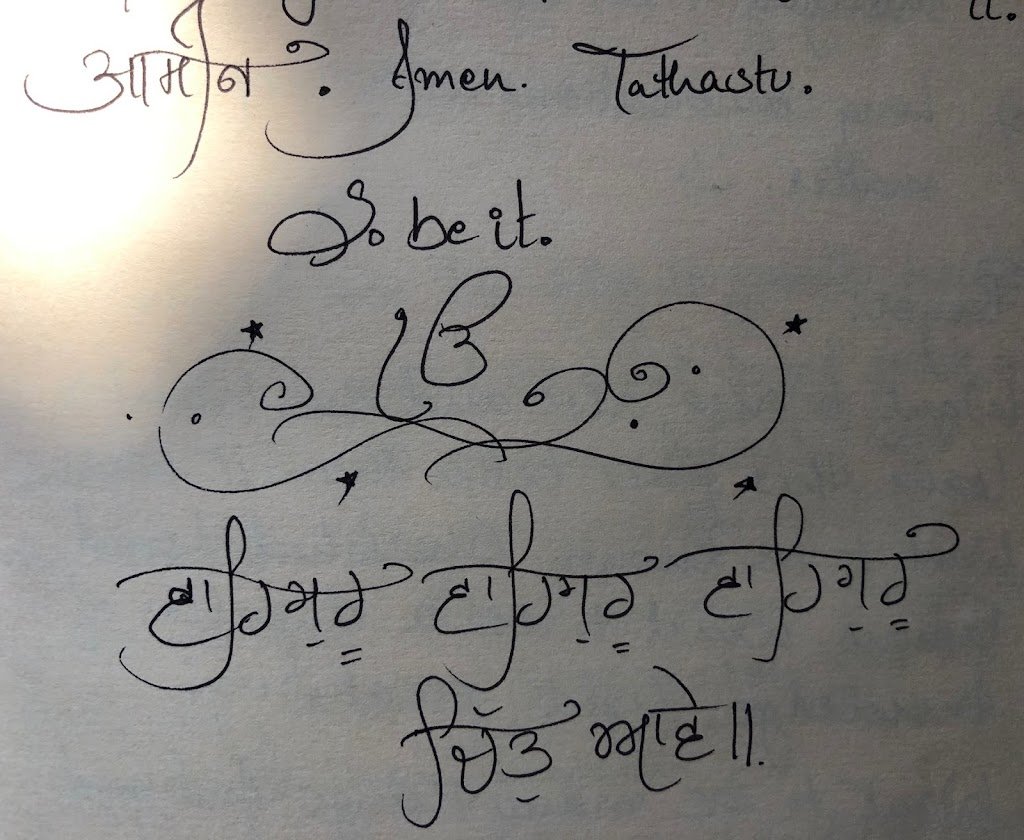 आमीन. Amen. Tathastu.
So be it.
ੴ
ਵਾਹਿਗੁਰੂ ਵਾਹਿਗੁਰੂ ਵਾਹਿਗੁਰੂ
ਚਿੱਤੁ ਆਵੇ॥.